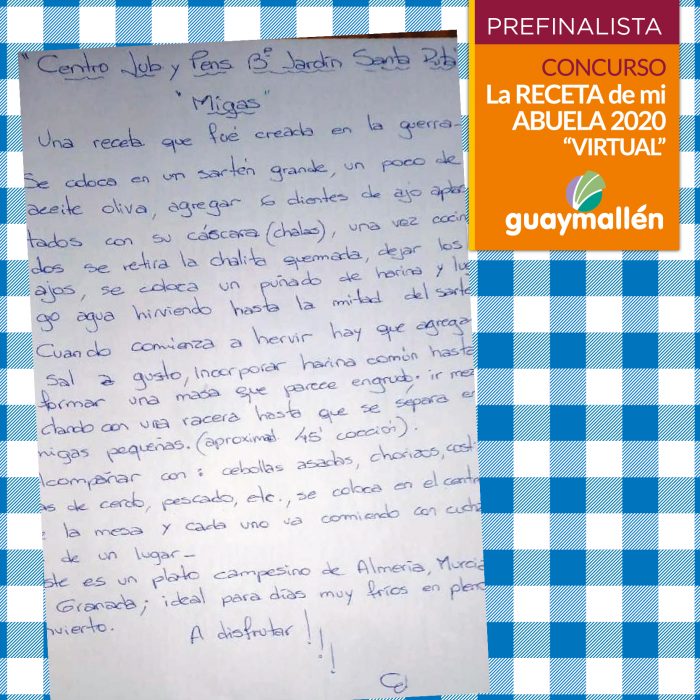 "Centro Jub y Pens Bº Jardín Santa Rita"
"Migas"
Una receta que fué creada en la guerra-
Se coloca en un sartén grande, un poco de
aceite oliva, agregar 6 dientes de ajo aplas
tados con su cáscara (chalas), una vez cocin
dos se retira la chalita quemada, dejar los
ajos, se coloca un puñado de harina y lue
go agua hirviendo hasta la mitad del sarté
Cuando comienza a hervir hay que agrega
sal a gusto, incorporar harina común hasta
formar una masa que parece engrudo. ir mez
clando con una racera hasta que se separa en
migas pequeñas. (aproximad 45' cocción).
Acompañar con: cebollas asadas, chorizos, costi
as de cerdo, pescado, etc., se coloca en el centr
e la mesa y cada uno va comiendo con cucha
de un lugar-
ste es un plato campesino de Almería, Murcia
Granada; ideal para días muy fríos en pleno
nvierto.
A disfrutar!!!!
PREFINALISTA
CONCURSO
La RECETA de mi
ABUELA 2020
"VIRTUAL"
guaymallén